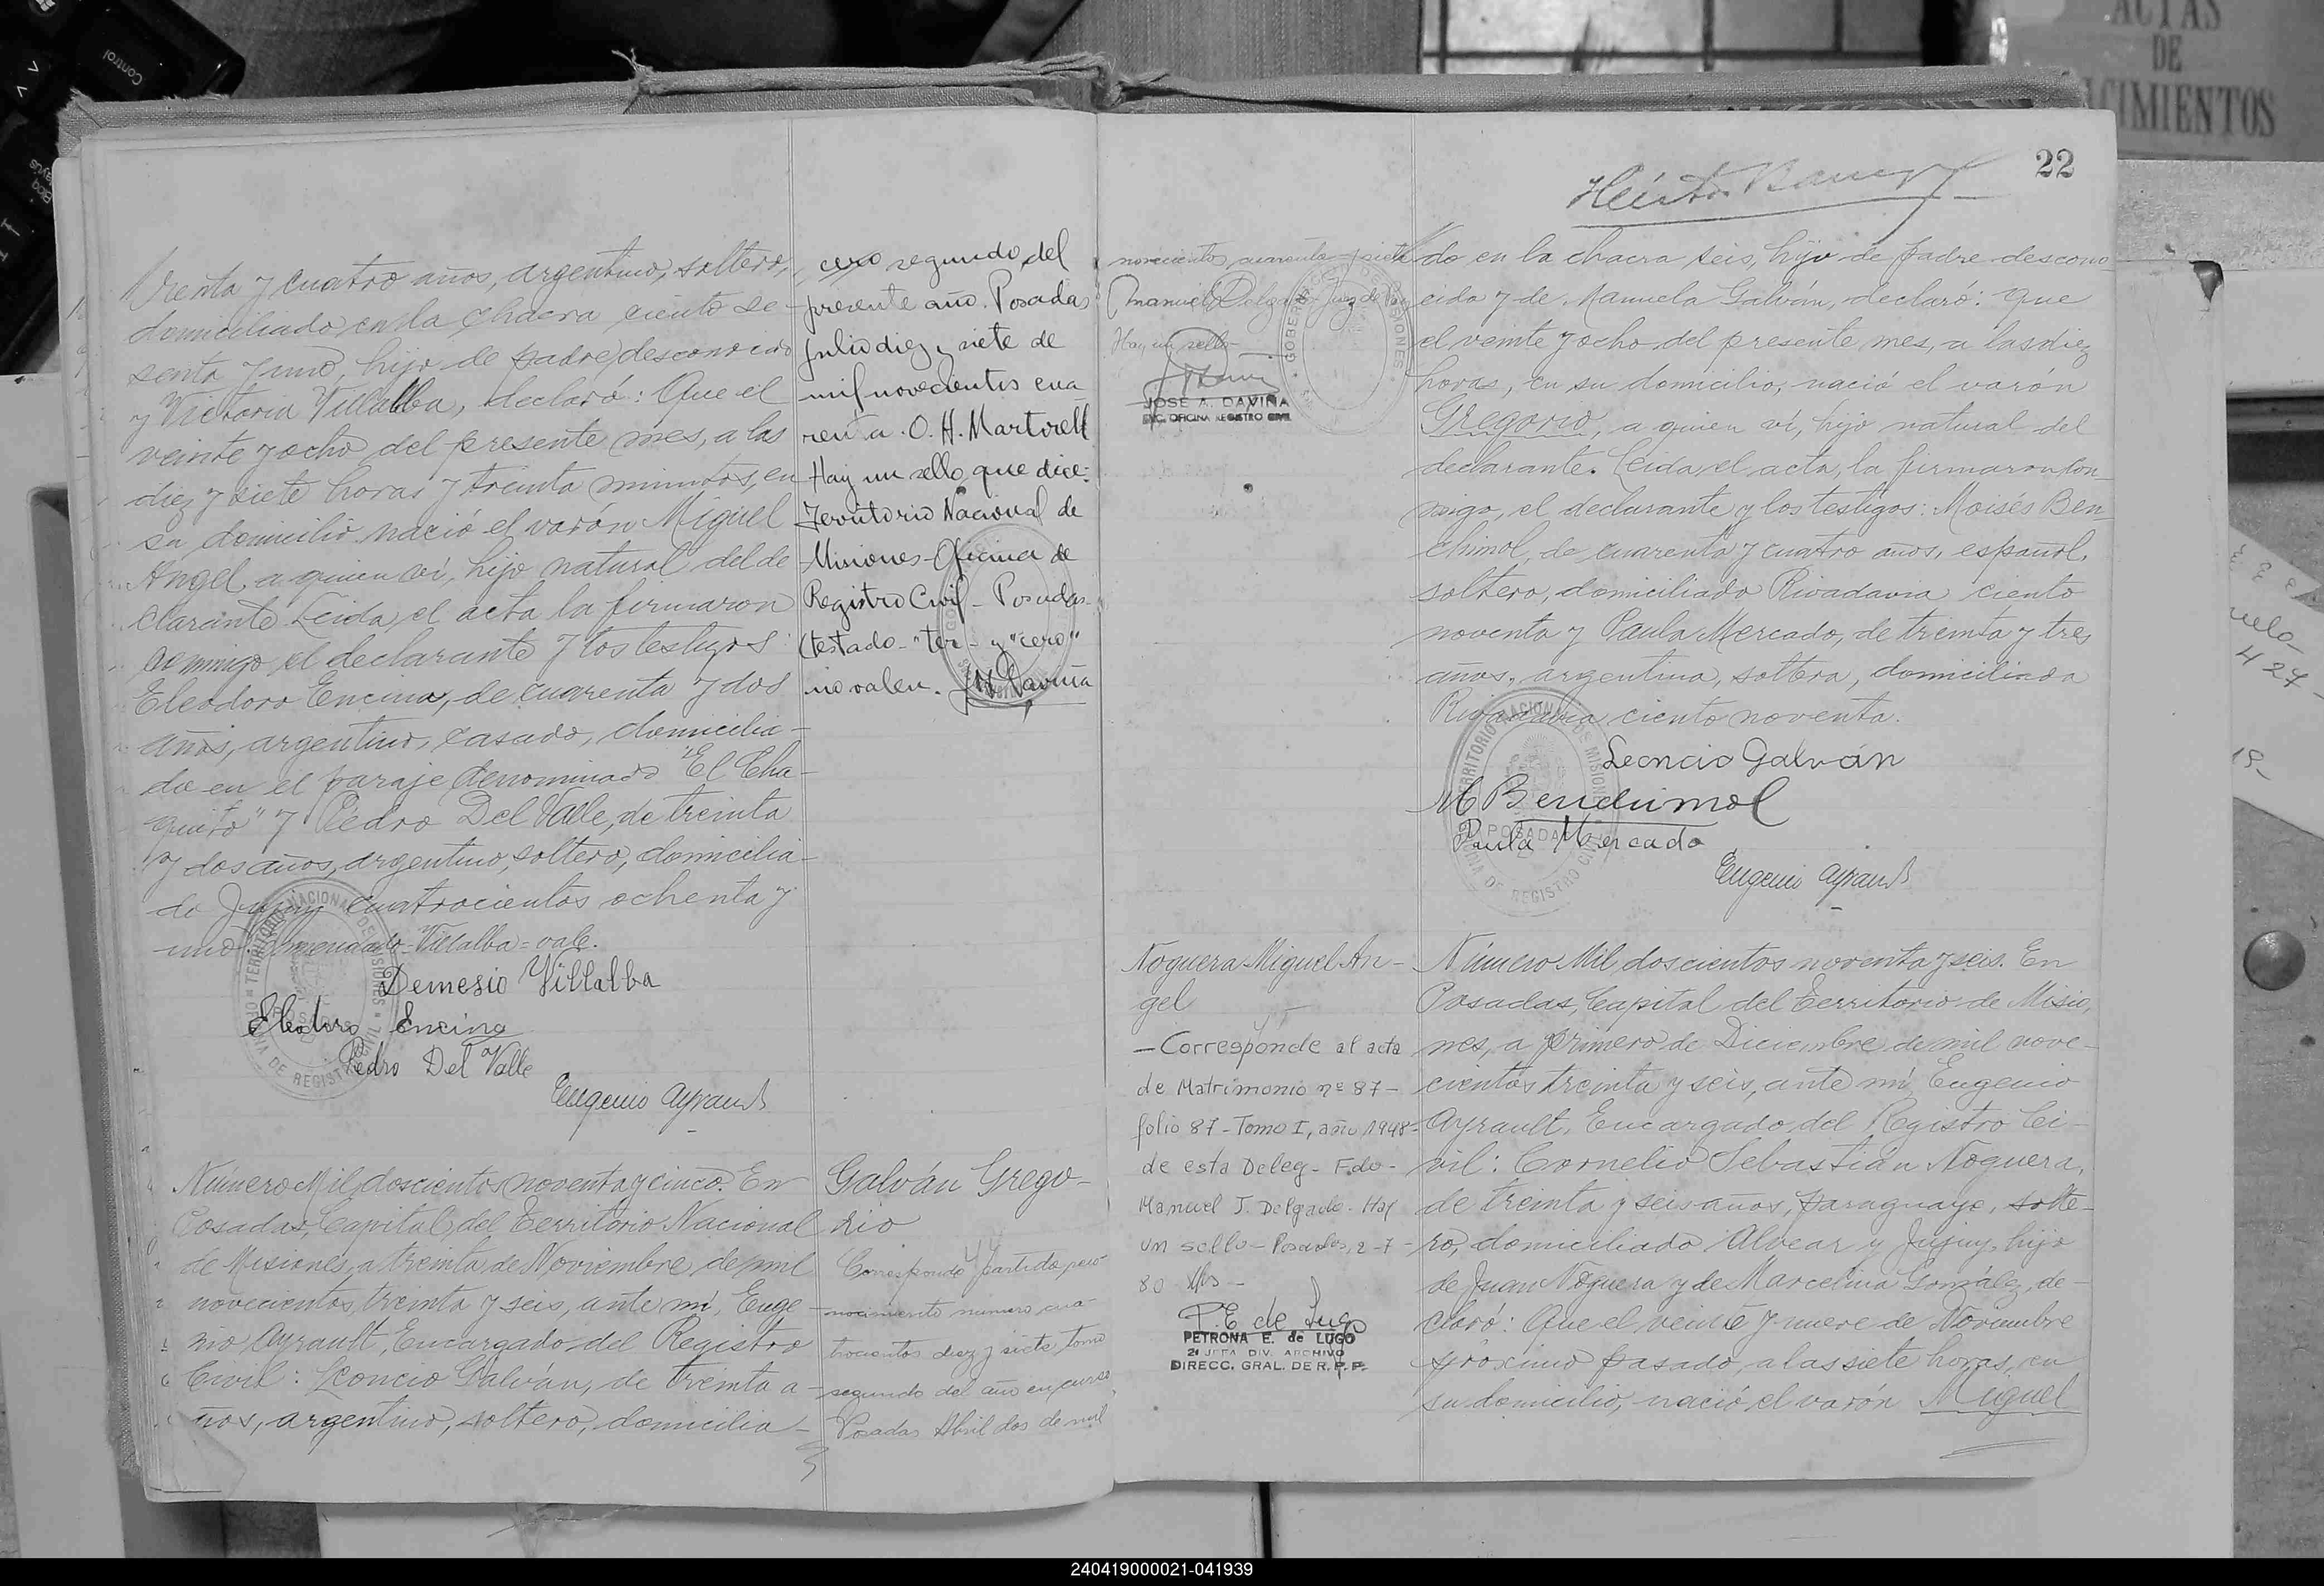 treinta y cuatro años, argentino, soltero,
domiciliado en la chacra ciento se-
senta y uno, hijo de padre desconocido
y Victoria Villalba, declaró: Que el
veinte y ocho del presente mes, a las
diez y siete horas y treinta minutos, en
su domicilio nació el varón Miguel
Angel, a quien ví, hijo natural del de
clarante. Leida el acta la firmaron
conmigo el declarante y los testigos:
Eleodoro Encina, de cuarenta y dos
años, argentino, casado, domicilia-
do en el paraje denominado "El Cha-
quito" y Pedro Del Valle, de treinta
y dos años, argentino, soltero, domicilia-
do Jujuy cuatrocientos ochenta y
uno. Enmendado = Villalba = vale.
Demesio Villalba
Eleodoro Encina
Pedro Del Valle
Eugenio Ayrault
cero segundo del
presente año. Posadas
Julio diez y siete de
mil novecientos cua
renta. O. H. Martorell
Hay un sello que dice:
Territorio Nacional de
Misiones - Oficina de
Registro Civil - Posadas.
(testado - "ter" - y "cero"
no valen.
Número Mil doscientos noventa y cinco. En
Posadas, Capital del Territorio Nacional
de Misiones, a treinta de Noviembre de mil
novecientos treinta y seis, ante mí, Euge
nio Ayrault, Encargado del Registro
Civil: Leoncio Galván, de treinta a-
ños, argentino, soltero, domicilia-
Galván Grego-
rio
Corresponde partida reco-
nocimiento número cua-
trocientos diez y siete, tomo
segundo del año en curso,
Posadas Abril dos de mil
22
novecientos cuarenta y siete
Manuel J Delgado Juez de Paz
Hay un sello
JOSE A. DAVIÑA
ENC. OFICINA REGISTRO CIVIL
do en la chacra seis, hijo de padre descono-
cido y de Manuela Galván, declaró: Que
el veinte y ocho del presente mes, a las diez
horas, en su domicilio, nació el varón
Gregorio, a quien ví, hijo natural del
declarante. Leida el acta, la firmaron con-
migo, el declarante y los testigos: Moisés Ben-
chimol, de cuarenta y cuatro años, español,
soltero, domiciliado Rivadavia ciento
noventa y Paula Mercado, de treinta y tres
años, argentina, soltera, domiciliada
Rivadavia ciento noventa.
Leoncio Galván
M Benchimol
Paula Mercado
Eugenio Ayrault
Noguera Miguel An-
gel
- Corresponde al acta
de Matrimonio nº 87-
folio 87 - Tomo I, año 1948-
de esta Deleg - Fdo-
Manuel J. Delgado. Hay
un sello - Posadas, 2-7-
80
P. E de Lugo
PETRONA E. de LUGO
2a JEFA DIV. ARCHIVO
DIRECC. GRAL. DE R. P. P.
Número Mil doscientos noventa y seis. En
Posadas, Capital del Territorio de Misio,
nes, a primero de Diciembre de mil nove-
cientos treinta y seis, ante mí, Eugenio
Ayrault, Encargado del Registro Ci-
vil: Cornelio Sebastián Noguera,
de treinta y seis años, paraguayo, solte-
ro, domiciliado Alvear y Jujuy, hijo
de Juan Noguera y de Marcelina González, de-
claró: Que el veinte y nueve de Noviembre
próximo pasado, a las siete horas, en
su domicilio, nació el varón Miguel
ACTAS
DE
CIMIENTOS
Control
424
19-
240419000021-041939